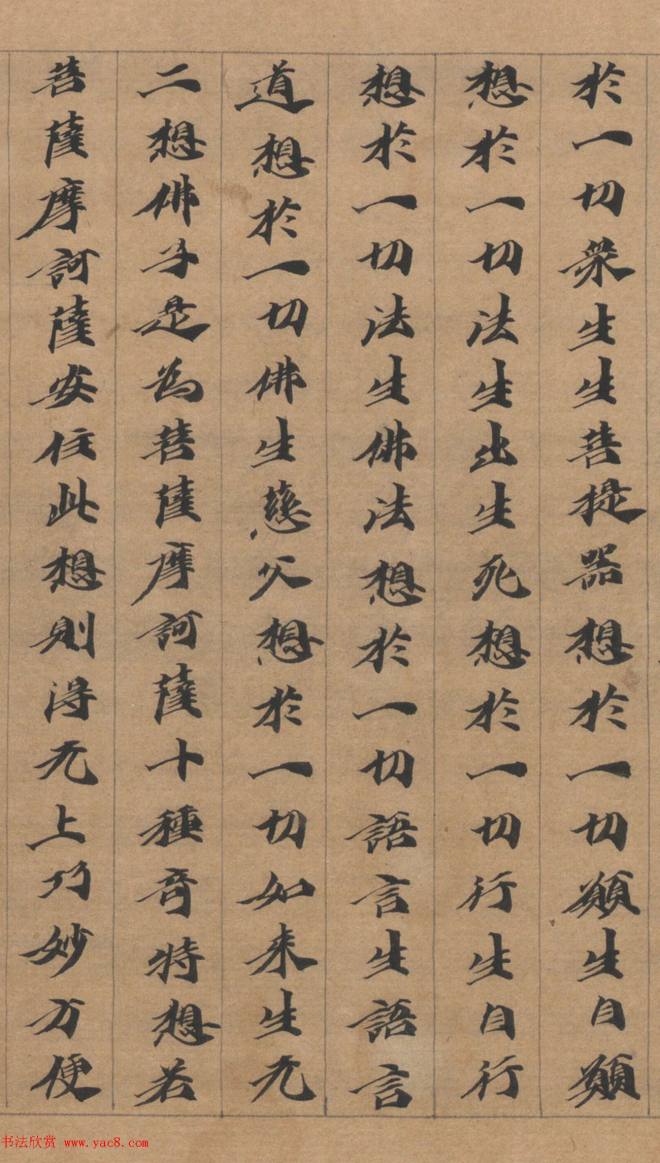 於一切衆生生菩提器想於一切願生自願
想於一切法生出生死想於一切行生自行
想於一切法生佛法想於一切語言生語言
道想於一切佛生慈父想於一切如来生无
二想佛子是為菩薩摩訶薩十種奇特想若
菩薩摩訶薩安住此想則得无上巧妙方便
书法欣赏 www.yac8.com